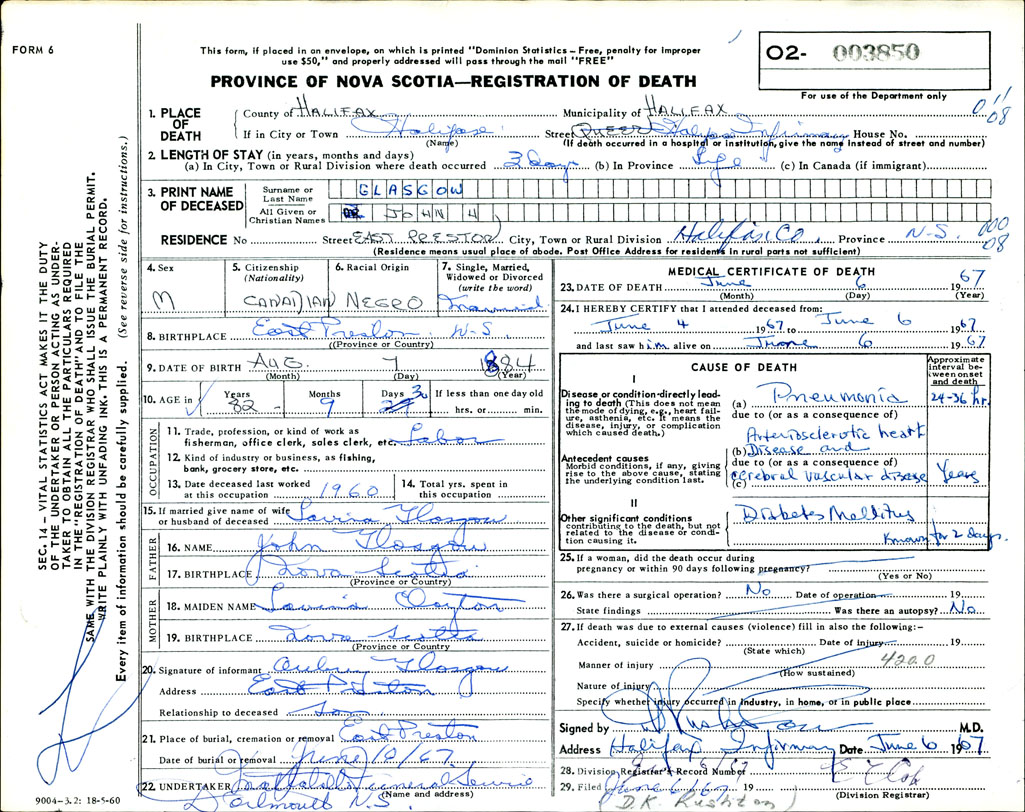 FORM 6
This form, if placed in an envelope, on which is printed "Dominion Statistics – Free, penalty for improper
use $50," and properly addressed will pass through the mail "FREE"
PROVINCE OF NOVA SCOTIA—REGISTRATION OF DEATH
02- 003850
For use of the Department only
SEC. 14. VITAL STATISTICS ACT MAKES IT THE DUTY
OF THE UNDERTAKER OR PERSON ACTING AS UNDER-
TAKER TO OBTAIN ALL THE PARTICULARS REQUIRED
IN THE "REGISTRATION OF DEATH" AND TO FILE THE
SAME WITH THE DIVISION REGISTRAR WHO SHALL ISSUE THE BURIAL PERMIT.
WRITE PLAINLY WITH UNFADING INK. THIS IS A PERMANENT RECORD.
Every item of information should be carefully supplied. (See reverse side for instructions.)
1. PLACE OF DEATH County of HALIFAX Municipality of HALIFAX
08
If in City or Town Halifax Street Halifax Infirmary House No.
(Name) (If death occurred in a hospital or institution, give the name instead of street and number)
2. LENGTH OF STAY (in years, months and days)
(a) In City, Town or Rural Division where death occurred 3 Days (b) In Province Life (c) In Canada (if immigrant)
3. PRINT NAME OF DECEASED Surname or Last Name GLASGOW
All Given or Christian Names JOHN H
RESIDENCE No Street EAST PRESTON City, Town or Rural Division Halifax Co. Province N.S. 000 08
(Residence means usual place of abode. Post Office Address for residents in rural parts not sufficient)
4. Sex 5. Citizenship (Nationality) 6. Racial Origin 7. Single, Married, Widowed or Divorced (write the word)
M CANADIAN NEGRO
8. BIRTHPLACE East Preston N-S.
(Province or Country)
9. DATE OF BIRTH AUG 7 1884
(Month) (Day) (Year)
10. AGE in Years Months Days If less than one day old
82 9 hrs. or min.
OCCUPATION
11. Trade, profession, or kind of work as
fisherman, office clerk, sales clerk, etc. Labor
12. Kind of industry or business, as fishing,
bank, grocery store, etc.
13. Date deceased last worked at this occupation 1960 14. Total yrs. spent in this occupation
15. If married give name of wife
or husband of deceased Lavina Glasgow
FATHER
16. NAME John Glasgow
17. BIRTHPLACE Nova Scotia
(Province or Country)
MOTHER
18. MAIDEN NAME Clayton
19. BIRTHPLACE Nova Scotia
(Province or Country)
20. Signature of informant Glasgow
Address East Preston
Relationship to deceased Son
21. Place of burial, cremation or removal East Preston
Date of burial or removal June /67.
22. UNDERTAKER Funeral Service
(Name and address)
Dartmouth N.S.
9004-3.2: 18-5-60
MEDICAL CERTIFICATE OF DEATH
23. DATE OF DEATH June 6 1967
(Month) (Day) (Year)
24. I HEREBY CERTIFY that I attended deceased from:
June 4 1967 to June 6 1967
and last saw him alive on June 6 1967
CAUSE OF DEATH
Approximate interval between onset and death
I
Disease or condition directly lead-
ing to death (This does not mean
the mode of dying, e.g., heart fail-
ure, asthenia, etc. It means the
disease, injury, or complication
which caused death.)
(a) Pneumonia 24-36 hr.
due to (or as a consequence of)
Arteriosclerotic heart
(b) Disease and
Antecedent causes
Morbid conditions, if any, giving
rise to the above cause, stating
the underlying condition last.
due to (or as a consequence of)
(c) cerebral vascular disease Years
II
Other significant conditions
contributing to the death, but not
related to the disease or condi-
tion causing it.
Diabetes Mellitus
Known for 2 days.
25. If a woman, did the death occur during
pregnancy or within 90 days following pregnancy?
(Yes or No)
26. Was there a surgical operation? No Date of operation 19
State findings Was there an autopsy? No
27. If death was due to external causes (violence) fill in also the following:-
Accident, suicide or homicide? Date of injury 19
(State which)
Manner of injury 4200
(How sustained)
Nature of injury
Specify whether injury occurred in industry, in home, or in public place
Signed by M.D.
Address Halifax Infirmary Date June 6 1967
28. Division Registrar's Record Number
29. Filed June 6/67 19
(Division Registrar)
(D.K. Rushton)